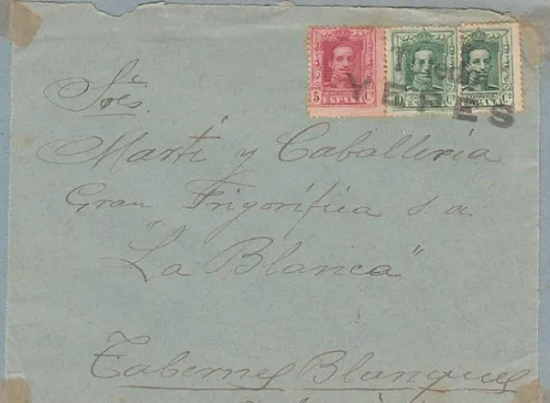 5 Cs ESPAÑA 10 ESPAÑA Cs ESPAÑA Cs
YEBES
Sres.
Martí y Caballería
Gran Frigorífica s. a.
"La Blanca"
Tabernes Blanques